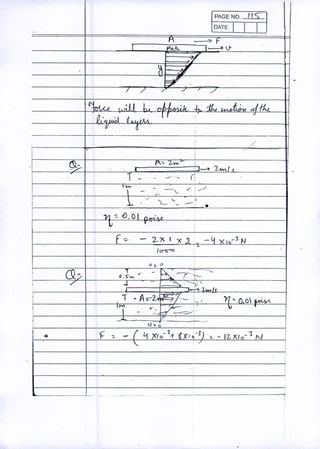 PAGE NO. 115
DATE
A
→ F
Plate
→ v
y
Force will be opposite to the motion of the
liquid layers.
Q.
A = 2m²
→ 2m/s
1m
η = 0.01 poise
F = - 2 x 1 x 2 = -4 x 10⁻³ N
1000
Q.
v = 0
0.5m
→ 2m/s
A = 2m²
1m
η = 0.01 poise
v = 0
F = - (4 x 10⁻³ + 8 x 10⁻³) = -12 x 10⁻³ N